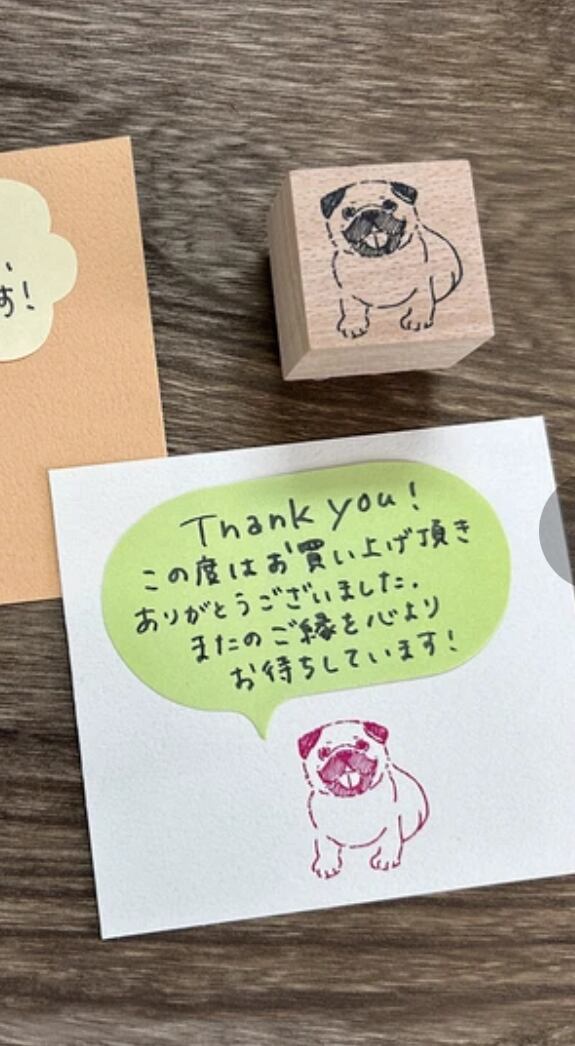 す!
Thank you!
この度はお買い上げ頂き
ありがとうございました.
またのご縁を心より
お待ちしています!